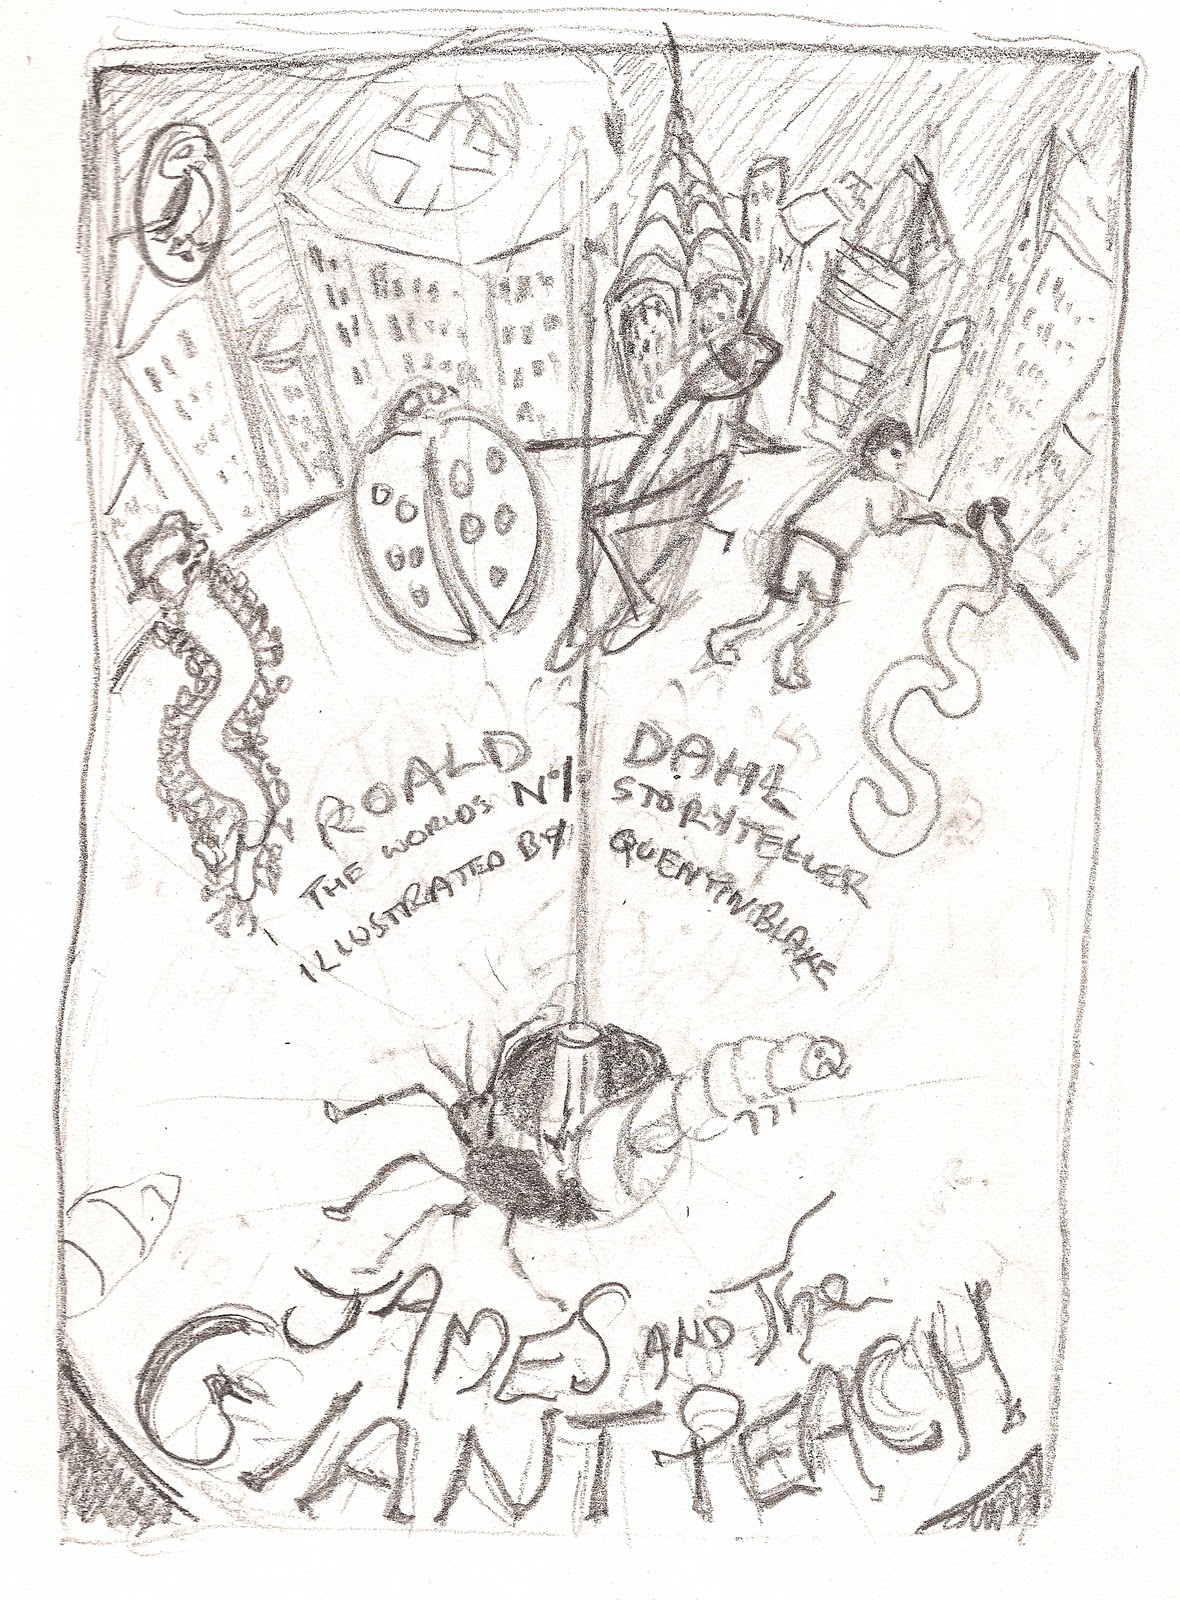 ROALD DAHL
THE WORLDS Nº1 STORYTELLER
ILLUSTRATED BY QUENTIN BLAKE
JAMES AND The
GIANT PEACH